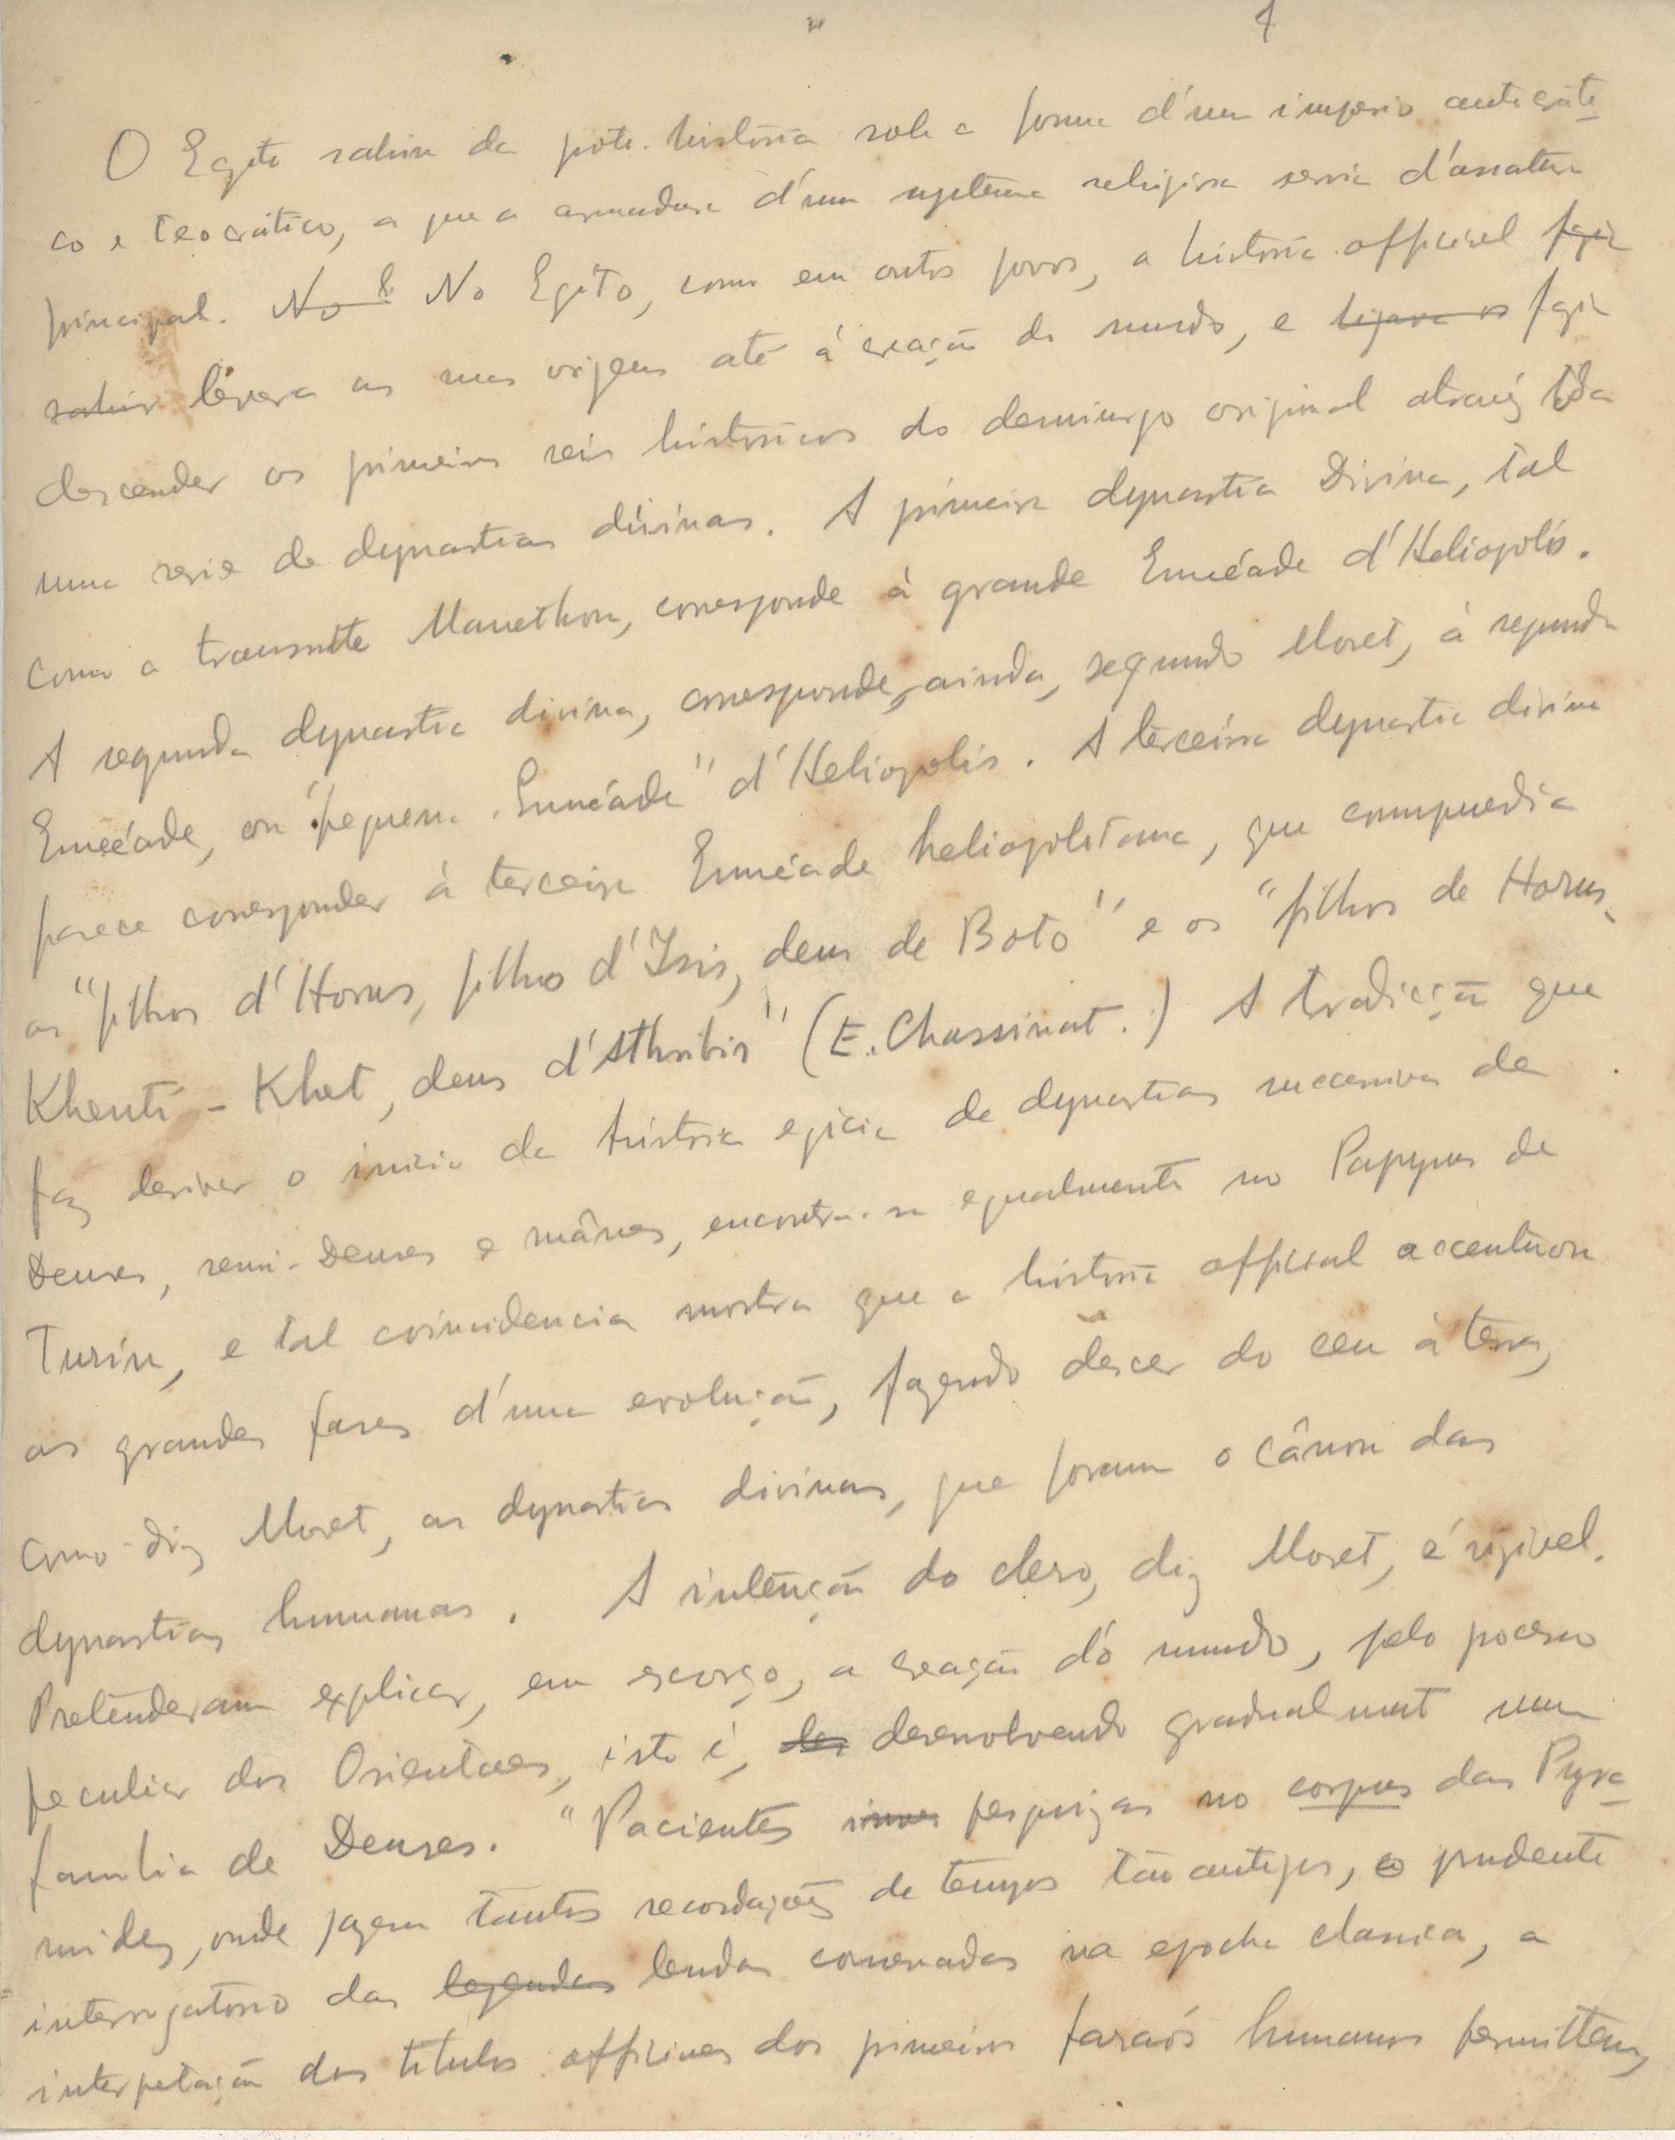 4
O Egito sahira da proto-historia sob a forma d'um imperio autocráti-
co e teocrático, a que a armadura d'um systema religioso servia d'ossatura
principal. No E No Egito, como em outros povos, a historia official fazia
sahir levava as suas origens até á creação do mundo, e ligava os fazia
descender os primeiros reis historicos do demiurgo original atravéz da
uma serie de dynastias divinas. A primeira dynastia Divina, tal
como a transmitte Manethon, corresponde á grande Ennéade d'Heliopolis.
A segunda dynastia divina, corresponde, ainda, segundo Moret, á segunda
Ennéade, ou "pequena Ennéade" d'Heliopolis. A terceira dynastia divina
parece corresponder á terceira Ennéade heliopolitana, que compunha
os "filhos d'Horus, filho d'Isis, deus de Boto" e os "filhos de Horus-
Khenti-Khet, deus d'Athribis" (E. Chassinat.) A tradicção que
faz derivar o inicio da historia egicia de dynastias successivas de
Deuses, semi-Deuses e mânes, encontra-se egualmente no Papyrus de
Turin, e tal coincidencia mostra que a historia official accentuou
as grandes fases d'uma evolução, fazendo descer do ceu á terra,
como diz Moret, as dynastias divinas, que foram o cânon das
dynastias humanas. A intenção do clero, diz Moret, é visivel.
Pretenderam explicar, em escorço, a creação do mundo, pelo processo
peculiar dos Orientaes, isto é, des desenvolvendo gradualmente uma
familia de Deuses. "Pacientes pesquizas no corpus das Pyra-
mides, onde jazem tantas recordações de tempos tão antigos, o prudente
interrogatorio das legendas lendas conservadas na epocha classica, a
interpretação dos titulos officiaes dos primeiros faraós humanos permittem,